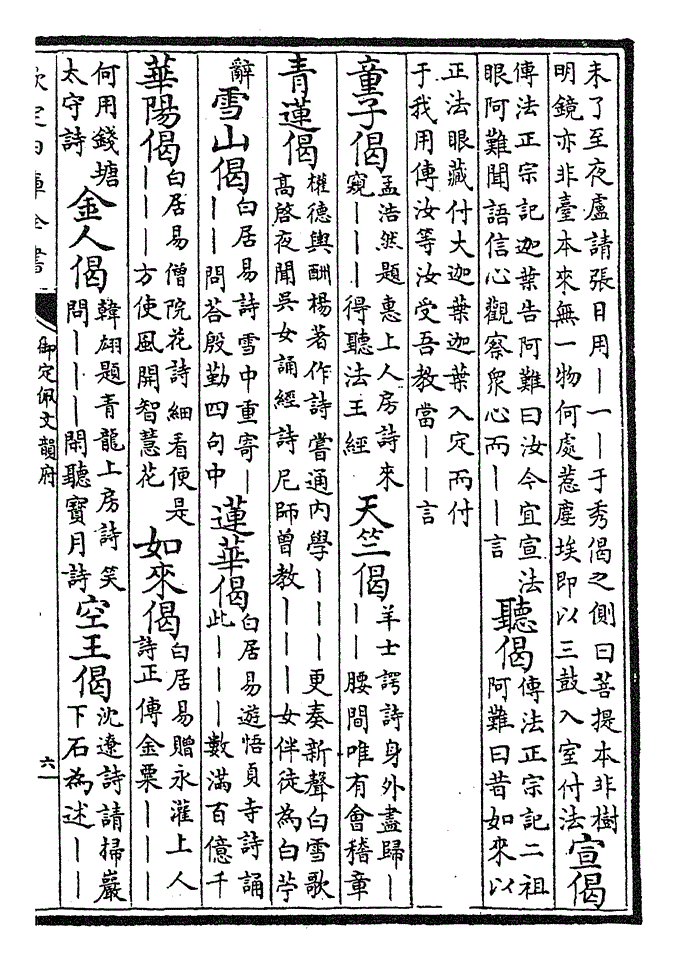 未了至夜盧請張日用｜一｜于秀偈之側曰菩提本非樹
明鏡亦非臺本來無一物何處惹塵埃即以三鼓入室付法
宣偈
傳法正宗記迦葉告阿難曰汝今宜宣法
眼阿難聞語信心觀察衆心而｜｜言
聽偈
傳法正宗記二祖
阿難曰昔如來以
正法眼藏付大迦葉迦葉入定而付
于我用傳汝等汝受吾教當｜｜言
童子偈
孟浩然題惠上人房詩來
窺｜｜｜得聽法王經
天竺偈
羊士諤詩身外盡歸｜
｜｜腰間唯有會稽章
青蓮偈
權德輿酬楊著作詩嘗通内學｜｜｜更奏新聲白雪歌
高啓夜聞吳女誦經詩尼師曾教｜｜｜女伴徒為白苧
辭
雪山偈
白居易詩雪中重寄｜
｜｜問答殷勤四句中
蓮華偈
白居易遊悟貞寺詩誦
此｜｜｜數滿百億千
華陽偈
白居易僧院花詩細看便是
｜｜｜方使風開智慧花
如來偈
白居易贈永灌上人
詩正傳金粟｜｜｜
何用錢塘
太守詩
金人偈
韓翃題青龍上房詩笑
問｜｜｜閒聽寶月詩
空王偈
沈遼詩請掃巖
下石為述｜｜
欽定四庫全書
御定佩文韻府
六一